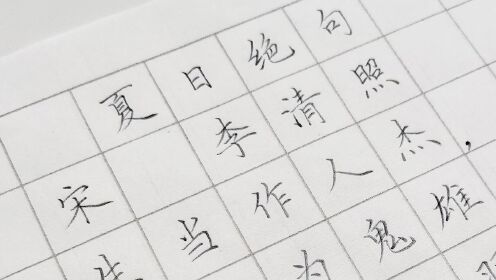 夏日绝句
宋 李清照
生当作人杰，
为鬼雄